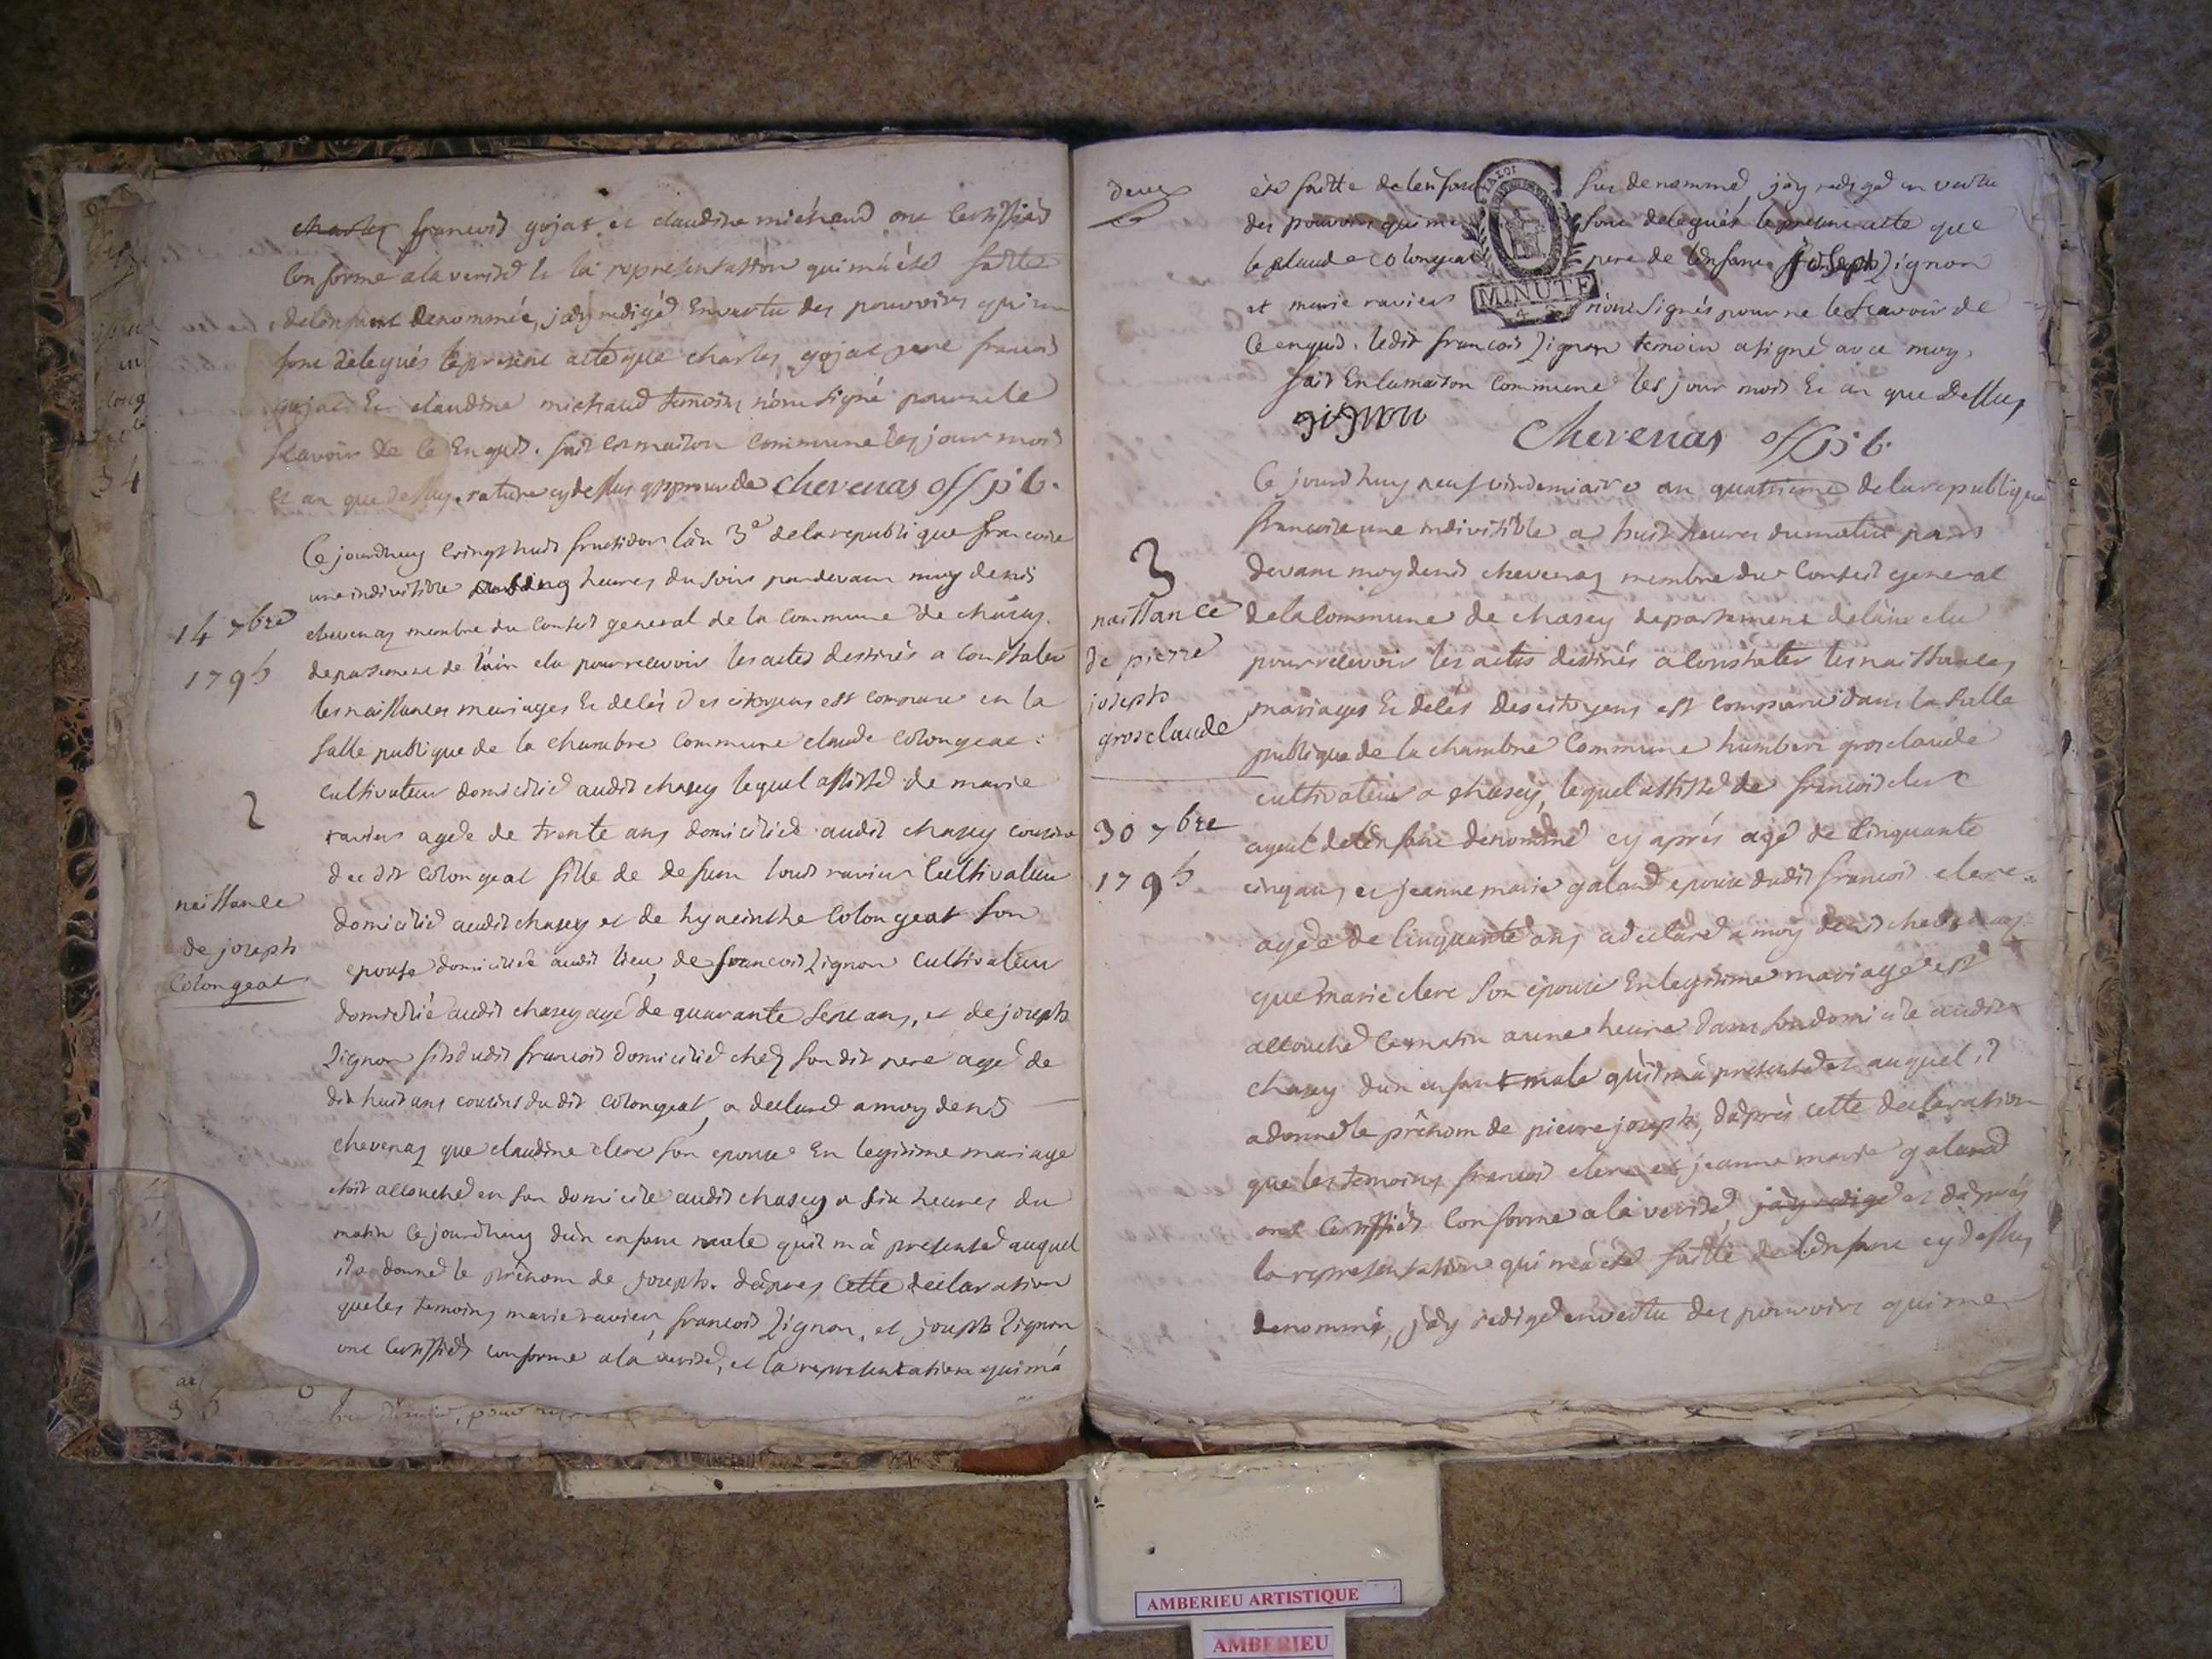 charles francois gojat et claudine michaud ont certiffiés
conforme a la verité et la representation qui m'a été faitte
de lenfant denommée, jay redigé en vertu des pouvoirs qui me
sont delegués le present acte que charles gojat pere francois
gojat et claudine michaud temoins n'ont signé pour ne le
scavoir de ce enquis. fait en maison commune les jour mois
et an que dessus. rature cy dessus approuvée chevenas off pb.
Ce jourdhuy vingt huit fructidor lan 3e de la republique francoise
une indivisible heures du soir pardevant moy denis
chevenaz membre du conseil general de la commune de chasey
departement de l'ain elu pour recevoir les actes destinés a constater
14 7bre
1795
les naissances mariages et décés des citoyens est comparu en la
salle publique de la chambre commune claude colongeat
cultivateur domicilié audit chasey lequel assisté de marie
2
ravier agée de trente ans domiciliée audit chasey cousine
du dit colongeat fille de defunt louis ravier cultivateur
domicilié audit chasey et de hyacinthe colongeat son
epouse domiciliée audit lieu, de francois Lignon cultivateur
naissance
de joseph
Colongeat
domicilié audit chasey agé de quarante sept ans, et de joseph
Lignon fils dudit francois domicilié chez son dit pere agé de
dix huit ans cousins du dit colongeat, a declaré a moy denis
chevenaz que claudine clerc son epouse en legitime mariage
etoit accouchée en son domicile audit chasey a six heures du
matin ce jourdhuy d'un enfant male qu'il m'a presenté auquel
il a donné le prénom de joseph. d'apres cette declaration
que les temoins marie ravier, francois Lignon, et joseph Lignon
ont certiffiés conforme a la verité, et la representation qui m'a
deux
été faitte de lenfant sus denommé, jay redigé en vertu
des pouvoirs qui me sont delegués le present acte que
le claude colongeat pere de lenfant joseph Lignon
et marie ravier n'ont signés pour ne le scavoir de
MINUTE
ce enquis. ledit francois Lignon temoin a signé avec moy
fait en la maison commune les jour mois et an que dessus
Chevenas off pb.
Ce jourdhuy neuf vindemiaire an quatrieme de la republique
francoise une indivisible a huit heures du matin par
devant moy denis chevenaz membre du conseil general
3
naissance
de pierre
joseph
grosclaude
de la commune de chasey departement de l'ain elu
pour recevoir les actes destinés a constater les naissances
mariages et décés des citoyens est comparu dans la salle
publique de la chambre commune humbert grosclaude
cultivateur a chasey, lequel assisté de francois clerc
30 7bre
1795
ayeul de lenfant denommé cy aprés agé de cinquante
cinq ans, et jeanne marie galand epouse dudit francois clerc
agée de cinquante ans, a declaré a moy denis chevenaz
que marie clerc son épouse en legitime mariage est
accouchée ce matin a une heure dans son domicile audit
chasey d'un enfant male qu'il m'a presenté et auquel il
a donné le prénom de pierre joseph, d'après cette declaration
que les temoins francois clerc et jeanne marie galand
ont certiffiés conforme a la verité, jay redigé et d'aprés
la representation qui m'a été faitte de lenfant cy dessus
denommé, j'ay redigé en vertu des pouvoirs qui me
AMBERIEU ARTISTIQUE
AMBERIEU